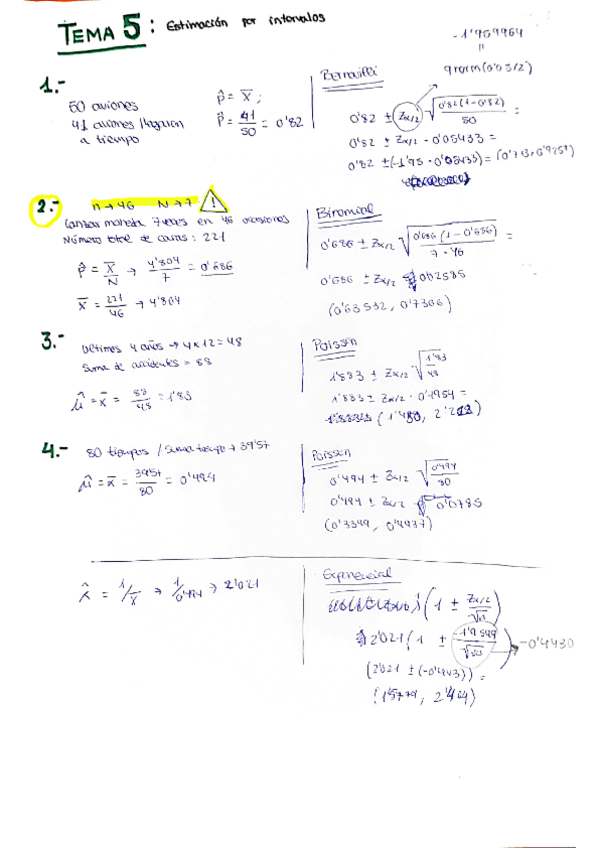 TEMA 5: Estimación por intervalos
-1'959964
"
qnorm(0'05/2)
1.-
50 aviones
41 aviones llegaron
a tiempo
p̂ = X̄ ;
p̂ = 41/50 = 0'82
Bernoulli
0'82 ± Zα/2 √(0'82(1-0'82)/50) =
0'82 ± Zα/2 · 0'05433 =
0'82 ± (-1'95 · 0'05433) = (0'713, 0'9259)
2.- n → 46 N → 7 !
Lanzar moneda 7 veces en 46 ocasiones
Número total de caras: 221
p̂ = X̄/N → 4'804/7 = 0'686
X̄ = 221/46 → 4'804
Binomial
0'686 ± Zα/2 √(0'686(1-0'686)/7·46) =
0'686 ± Zα/2 0'02585
(0'63532, 0'7366)
3.-
Últimos 4 años → 4x12 = 48
Suma de accidentes = 88
μ̂ = x̄ = 88/48 = 1'83
Poisson
1'833 ± Zα/2 √(1'83/48)
1'833 ± Zα/2 · 0'1954 =
4.- 80 tiempos / Suma tiempo → 39'57
μ̂ = x̄ = 3957/80 = 0'494
Poisson
0'494 ± Zα/2 √(0'494/80)
0'494 ± Zα/2 · 0'0785
(0'3399, 0'4937)
λ̂ = 1/x̄ → 1/0'494 → 2'021
Exponencial
(1 ± Zα/2/√n)
2'021 (1 ± -1'9599/√80) → -0'4430
(2'021 ± (-0'4443)) =
(1'5779, 2'464)